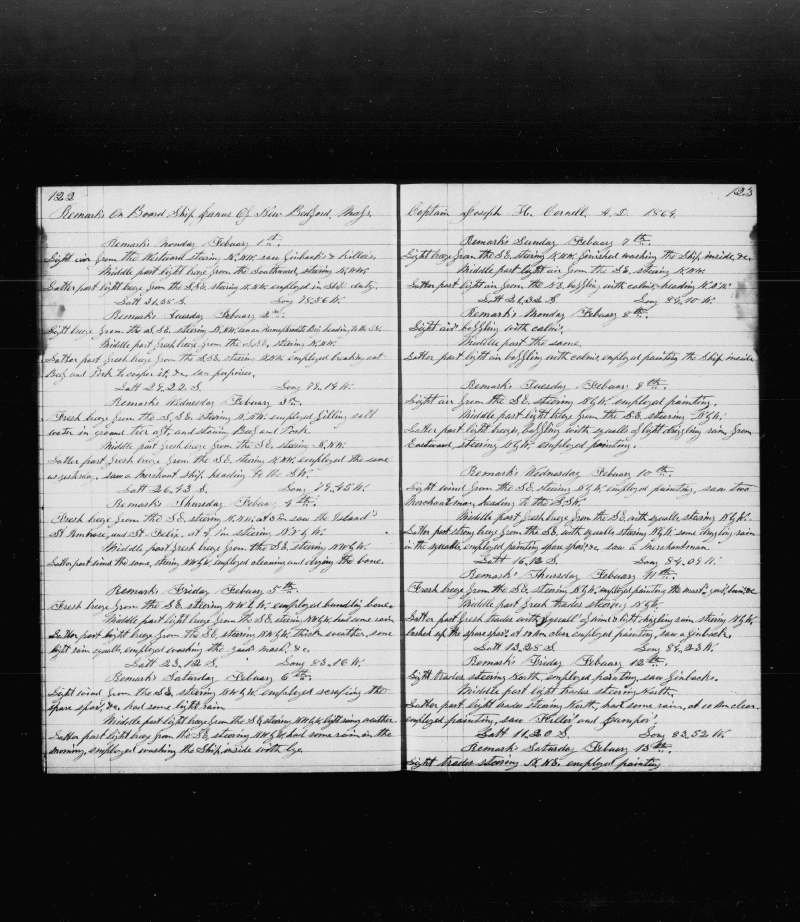 122
Remarks On Board Ship Janus Of New Bedford, Mass.
Remarks Monday Febuary 1st.
Light air from the Westward steering N.NW. saw finbacks & Killers.
Middle part light breze from the Southward, steering N.NW.
Latter part light breze from the S,SE. steering N.NW. employed in Ship duty.
Latt 31,38 S. Long 78,56 W.
Remarks Tuesday Febuary 2nd.
Light breze from the S.SE. steering N.NW. saw an Humpbacks heading to the SE.
Middle part fresh breze from the S,SE. steering N.NW.
Latter part fresh breze from the S,SE. steering N.NW. employed breaking out
Beef and Pork to cooper it, &c, sun porpoises.
Latt 29,22 S. Long 79,19 W.
Remarks Wednesday Febuary 3rd.
Fresh breze from the S,SE. steering N.NW. employed filling salt
water in ground tier aft, and stowing Beef and Pork.
Middle part fresh breze from the SE. steering N.NW.
Latter part fresh breze from the S.E, steering N.NW. employed the same
as yesterday. saw a merchant ship heading to the SW.
Latt 26,43 S. Long 79,45 W.
Remarks Thursday Febuary 4th.
Fresh breze from the SE, steering N.NW; at 3 Pm saw the Island's
St Ambrose, and St. Felix. at 7 Pm steering NW by W.
Middle part fresh breze from the SE. steering NW by W.
Latter part wind the same, steering NW by W. employed cleaning and drying the bone.
Remarks Friday Febuary 5th.
Fresh breze from the SE. steering NW by W. employed bundling bone.
Middle part light breze from the SE. steering NW by W. had some rain
Latter part light breze from the SE, steering NW by W. thick weather, some
light rain squalls, employed washing the yards mast, &c.
Latt 23,12 S. Long 83,16 W.
Remarks Saturday Febuary 6th.
Light wind from the SE, steering NW by W. employed scraping the
spare spar, &c. had some light rain
Middle part light breze from the SE steering NW by W. light rainy weather.
Latter part light breze from the SE, steering NW by W, had some rain in the
morning, employed washing the Ship, inside with lye.
123
Captain Joseph H. Cornell, A.D. 1864.
Remarks Sunday Febuary 7th.
Light breze from the SE. steering N.NW. finished washing the Ship inside, &c.
Middle part light air from the SE. steering N.NW.
Latter part light air from the NE, baffling with calms, heading N.NW.
Latt 21,32 S Long 84,10 W.
Remarks Monday Febuary 8th.
Light aird baffling with calms.
Middle part the same.
Latter part light air baffling with calms, employed painting the Ship inside
Remarks Tuesday Febuary 9th.
Light air from the SE. steering N by W. employed painting.
Middle part light breze from the SE. steering N by W.
Latter part light breeze, baffling with squalls of light drizling rain from
Eastward, steering N by W. employed painting.
Remarks Wednesday Febuary 10th.
Light wind from the SE. steering N by W. employed painting, saw two
Merchantmen heading to the S,SW.
Middle part fresh breze from the SE, with squalls, steering N by W.
Latter part strong breze from the SE. with squalls steering N by W. some drizling rain
in the squalls, employed painting spare spars &c, saw a merchantman.
Latt 16,12 S. Long 84,09 W.
Remarks Thursday Febuary 11th.
Fresh breze from the SE, steering N by W, employed painting the mast's yard, boom's &c
Middle part fresh trades steering N by W
Latter part fresh trades with squall's of wind & light drizling rain steering N by W.
lashed up the spare spars. at 10 Am clear employed painting, saw a finback.
Latt 13,28 S. Long 84,23 W.
Remarks Friday Febuary 12th.
Light trades steering North, employed painting, saw finbacks.
Middle part light trades steering North.
Latter part light trades steering North, had some rain, at 10 Am clear.
employed painting, saw Killer's and Jumper's,
Latt 11,20 S. Long 83,52 W.
Remarks Saturday Febuary 13th.
Light trades steering N.NE. employed painting